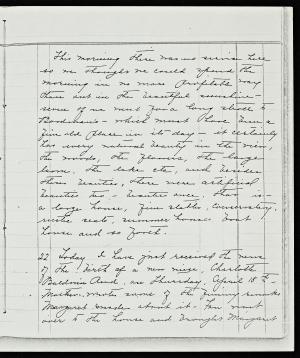 This morning there was no service here
so we thought we could spend the
morning in no more profitable way
than out in the beautiful sunshine -
some of us went for a long stroll to
- which must have been a
fine old place in its day - it certainly
has every natural beauty in the view,
the woods, the flowers, the large
lawn, the lake etc, and besides
these beauties, there were artificial
beauties too - that is -
a large house, fine stable, conservatory,
rustic seats, summer house, boat
house and so forth.
22 Today I have just received the news
of the birth of a new niece, Charlotte
Reed, on Thursday, April 18th -
Mother wrote some of the funny remarks
Margaret made about it. They went
over to the house and brought Margaret